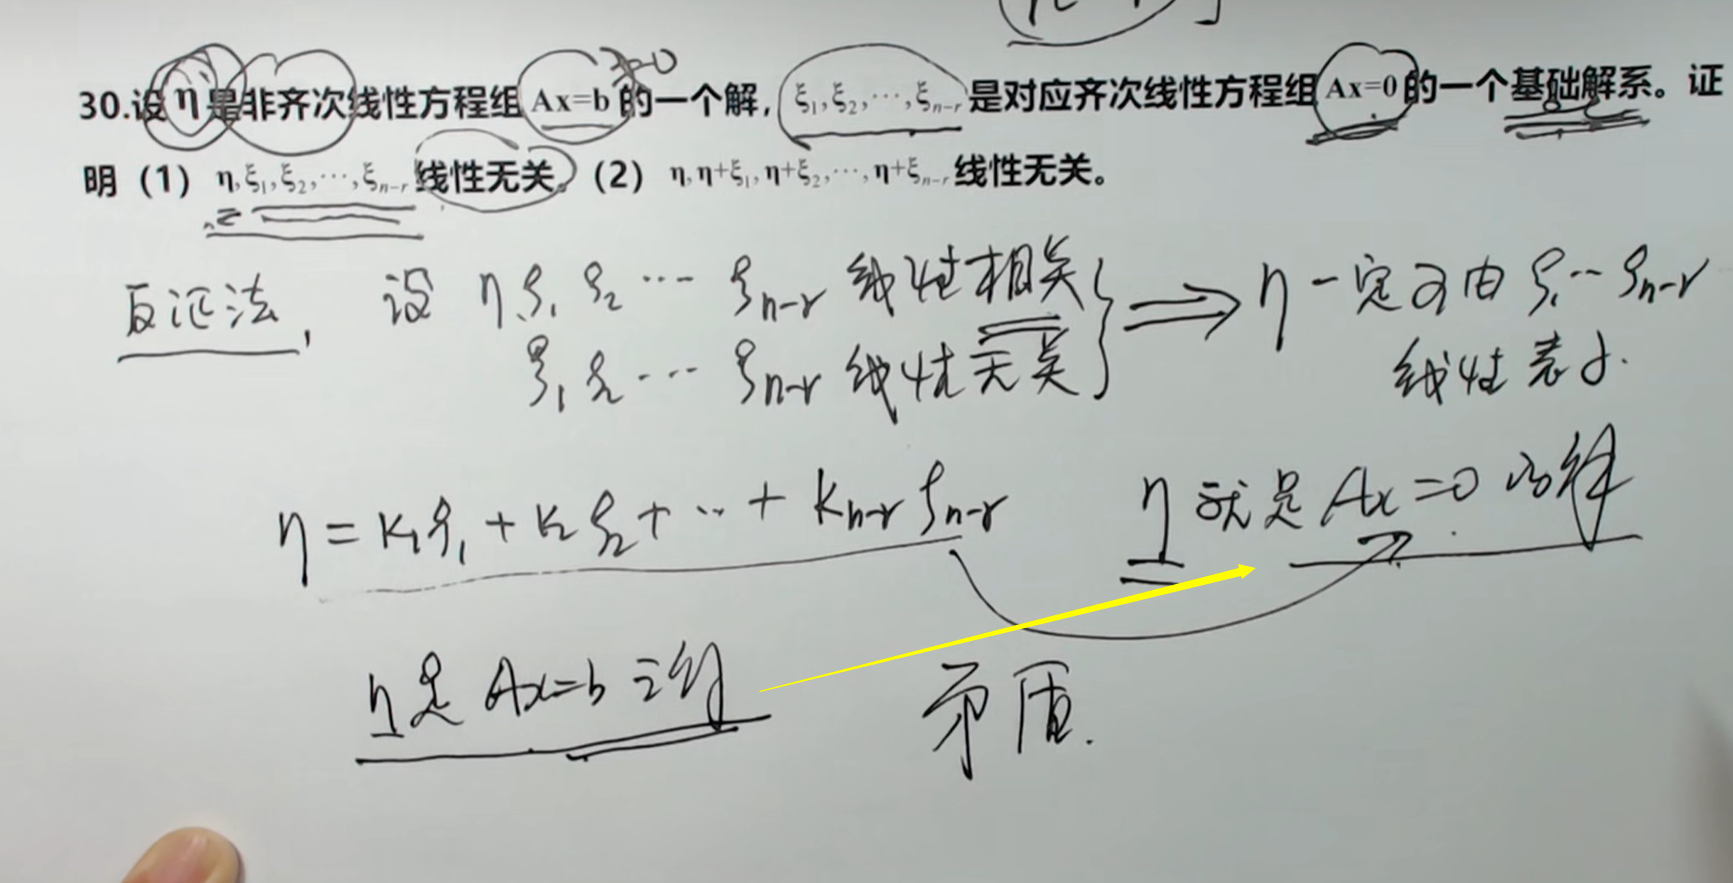 ≠0
30.设η是非齐次线性方程组Ax=b的一个解，ξ₁,ξ₂,⋯,ξₙ₋ᵣ是对应齐次线性方程组Ax=0的一个基础解系。证
明（1）η,ξ₁,ξ₂,⋯,ξₙ₋ᵣ线性无关。（2）η,η+ξ₁,η+ξ₂,⋯,η+ξₙ₋ᵣ线性无关。
反证法，设 η ξ₁ ξ₂ ⋯ ξₙ₋ᵣ 线性相关 } ⟹ η一定可由 ξ₁⋯ξₙ₋ᵣ
ξ₁ ξ₂ ⋯ ξₙ₋ᵣ 线性无关 线性表示.
η = k₁ξ₁ + k₂ξ₂ + ⋯ + kₙ₋ᵣξₙ₋ᵣ η就是Ax=0的解
η是Ax=b的解 矛盾.